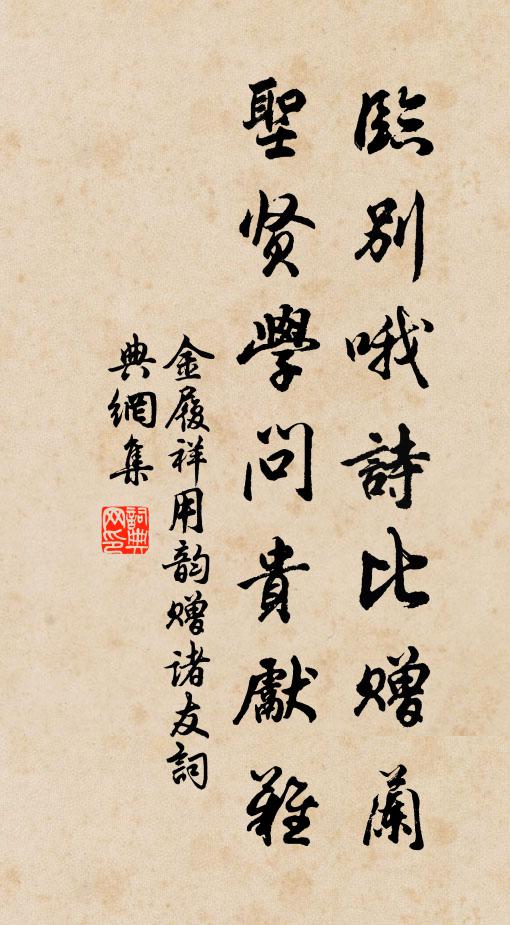 臨別哦詩比贈蘭
聖贤學问貴獻難
金履祥用韵赠诸友詞
典網集
詞典網印